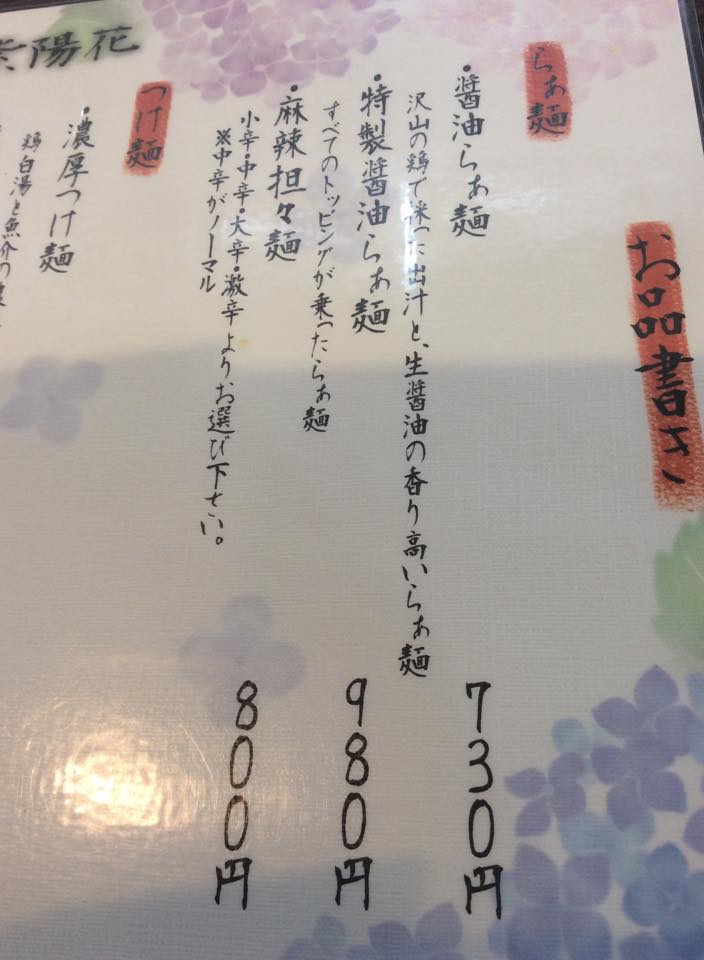 お品書き
らぁ麺
・醤油らぁ麺
730円
沢山の鶏で採った出汁と、生醤油の香り高いらぁ麺
・特製醤油らぁ麺
980円
すべてのトッピングが乗ったらぁ麺
・麻辣担々麺
800円
小辛・中辛・大辛・激辛よりお選び下さい。
※中辛がノーマル
つけ麺
・濃厚つけ麺
鶏白湯と魚介の濃
紫陽花